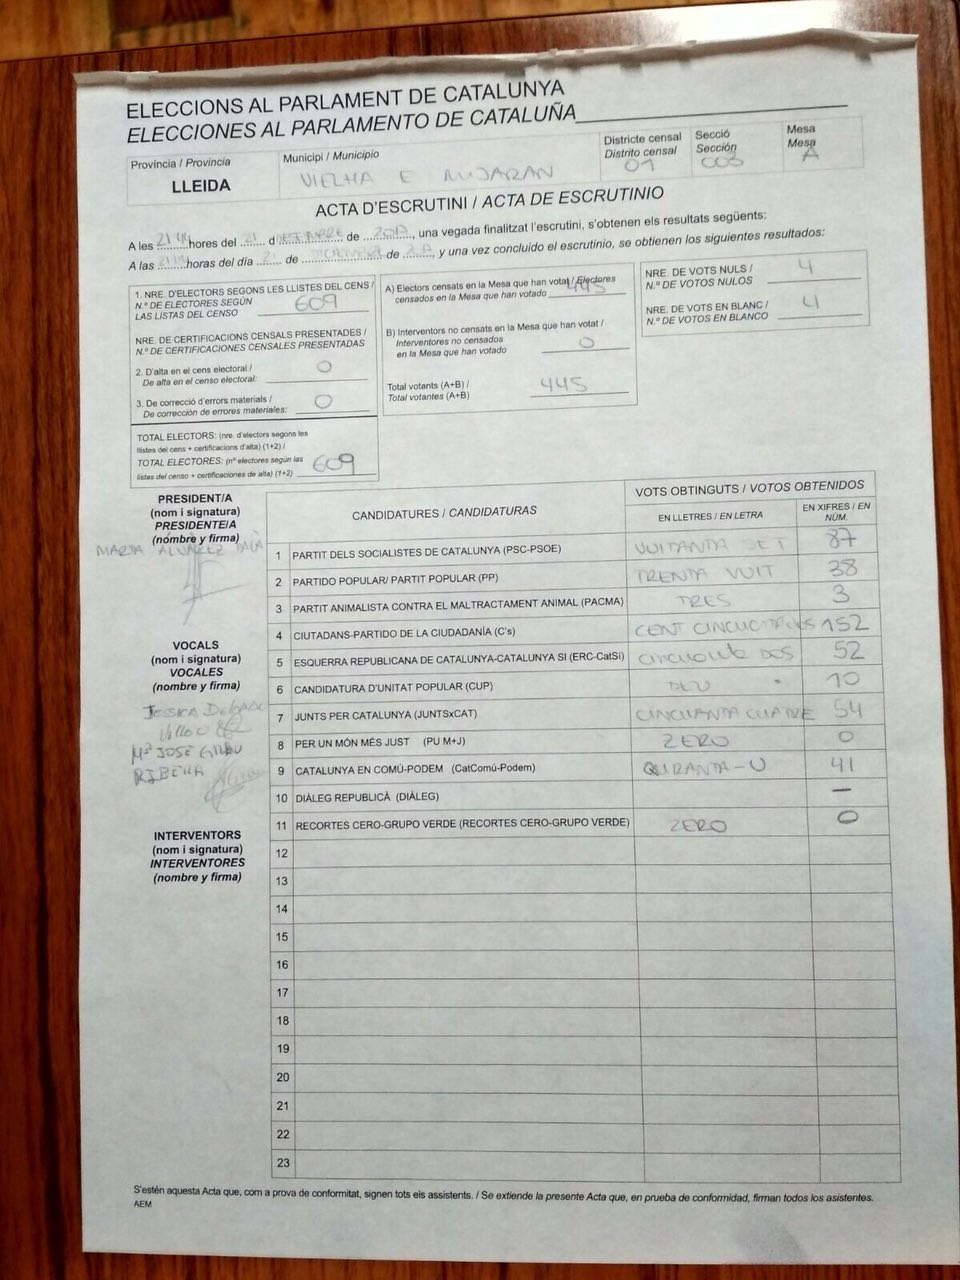 ELECCIONS AL PARLAMENT DE CATALUNYA
ELECCIONES AL PARLAMENTO DE CATALUÑA
Província / Provincia
LLEIDA
Municipi / Municipio
VIELHA E MIJARAN
Districte censal
Distrito censal
01
Secció
Sección
003
Mesa
Mesa
A
ACTA D'ESCRUTINI / ACTA DE ESCRUTINIO
A les 21'44 hores del 21 d de 2017, una vegada finalitzat l'escrutini, s'obtenen els resultats següents:
A las horas del día 21 de de, y una vez concluido el escrutinio, se obtienen los siguientes resultados:
1. NRE. D'ELECTORS SEGONS LES LLISTES DEL CENS /
N.º DE ELECTORES SEGÚN
LAS LISTAS DEL CENSO 609
NRE. DE CERTIFICACIONS CENSALS PRESENTADES /
N.º DE CERTIFICACIONES CENSALES PRESENTADAS
2. D'alta en el cens electoral /
De alta en el censo electoral: 0
3. De correcció d'errors materials /
De corrección de errores materiales: 0
TOTAL ELECTORS: (nre. d'electors segons les
llistes del cens + certificacions d'alta) (1+2) /
TOTAL ELECTORES: (nº electores según las
listas del censo + certificaciones de alta) (1+2) 609
A) Electors censats en la Mesa que han votat / Electores
censados en la Mesa que han votado 445
B) Interventors no censats en la Mesa que han votat /
Interventores no censados
en la Mesa que han votado 0
Total votants (A+B) /
Total votantes (A+B) 445
NRE. DE VOTS NULS /
N.º DE VOTOS NULOS 4
NRE. DE VOTS EN BLANC /
N.º DE VOTOS EN BLANCO 4
PRESIDENT/A
(nom i signatura)
PRESIDENTE/A
(nombre y firma)
MARTA ALVAREZ
VOCALS
(nom i signatura)
VOCALES
(nombre y firma)
JESSICA
Mª JOSÉ
RIBERA
INTERVENTORS
(nom i signatura)
INTERVENTORES
(nombre y firma)
CANDIDATURES / CANDIDATURAS
VOTS OBTINGUTS / VOTOS OBTENIDOS
EN LLETRES / EN LETRA
EN XIFRES / EN
NÚM.
1 PARTIT DELS SOCIALISTES DE CATALUNYA (PSC-PSOE) VUITANTA SET 87
2 PARTIDO POPULAR/ PARTIT POPULAR (PP) TRENTA VUIT 38
3 PARTIT ANIMALISTA CONTRA EL MALTRACTAMENT ANIMAL (PACMA) TRES 3
4 CIUTADANS-PARTIDO DE LA CIUDADANÍA (C's) CENT 152
5 ESQUERRA REPUBLICANA DE CATALUNYA-CATALUNYA SÍ (ERC-CatSí) DOS 52
6 CANDIDATURA D'UNITAT POPULAR (CUP) DEU 10
7 JUNTS PER CATALUNYA (JUNTSxCAT) CINCUANTA CUATRE 54
8 PER UN MÓN MÉS JUST (PU M+J) ZERO 0
9 CATALUNYA EN COMÚ-PODEM (CatComú-Podem) QUARANTA-U 41
10 DIÀLEG REPUBLICÀ (DIÀLEG) —
11 RECORTES CERO-GRUPO VERDE (RECORTES CERO-GRUPO VERDE) ZERO 0
12
13
14
15
16
17
18
19
20
21
22
23
S'estén aquesta Acta que, com a prova de conformitat, signen tots els assistents. / Se extiende la presente Acta que, en prueba de conformidad, firman todos los asistentes.
AEM